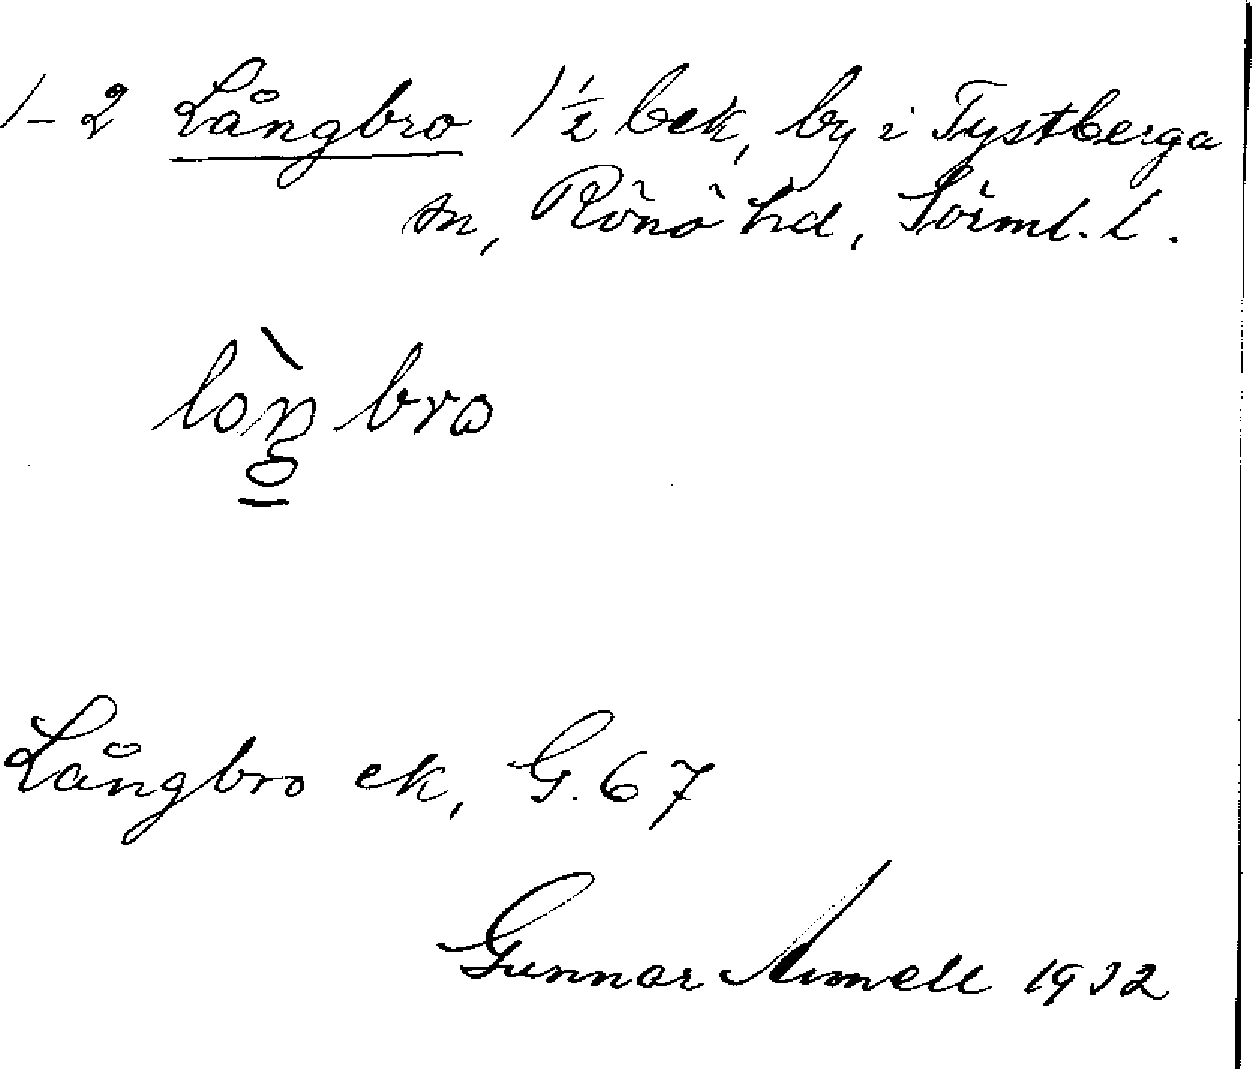 1-2 Långbro 1 1/2 bek, by i Tystberga
sn, Rönö hd, Sörml. l.
lòŋbro
Långbro ek, G. 67
Gunnar 1932